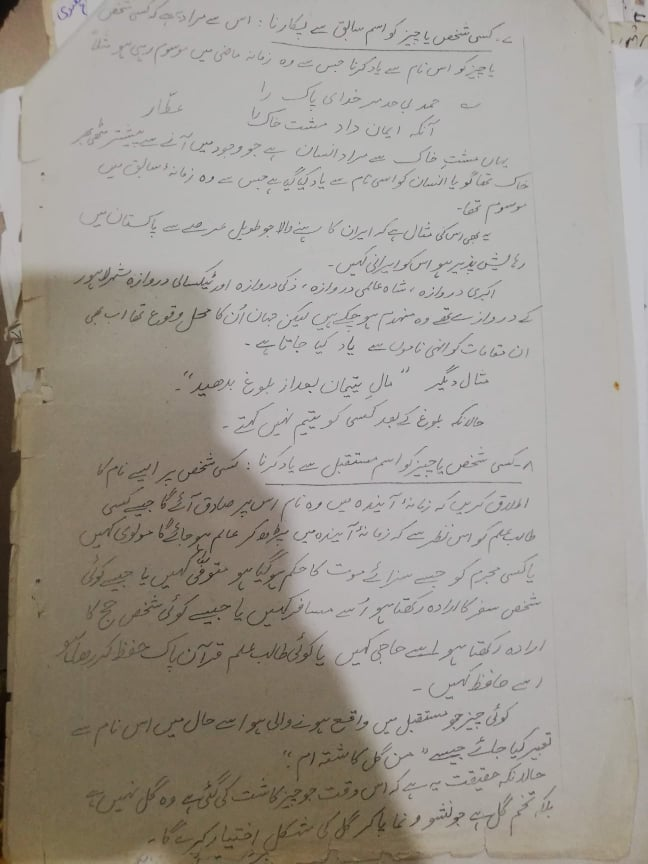 ۷۔ کسی شخص یا چیز کو اسم سابق سے پکارنا : اس سے مراد ہے کہ کسی شخص
یا چیز کو اس نام سے یاد کرنا جس سے وہ زمانہ ماضی میں موسوم رہی ہو مثلاً
حمد بی حد مر خدای پاک را
آنکہ ایمان داد مشت خاک را عطّار
یہاں مشت خاک سے مراد انسان ہے جو وجود میں آنے سے پیشتر مٹھی بھر
خاک تھا گویا انسان کو اسی نام سے یاد کیا گیا ہے جس سے وہ زمانۂ سابق میں
موسوم تھا۔
یہ بھی اس کی مثال ہے کہ ایران کا رہنے والا جو طویل عرصے سے پاکستان میں
رہائش پذیر ہو اس کو ایرانی کہیں۔
اکبری دروازہ ، شاہ عالمی دروازہ ، ذکی دروازہ اور ٹیکسالی دروازہ شہر لاہور
کے دروازے تھے وہ منہدم ہو چکے ہیں لیکن جہاں اُن کا محل وقوع تھا اب بھی
ان مقامات کو انہی ناموں سے یاد کیا جاتا ہے۔
مثال دیگر " مالِ یتیمان بعد از بلوغ بدھید "۔
حالانکہ بلوغ کے بعد کسی کو یتیم نہیں کہتے۔
۸۔ کسی شخص یا چیز کو اسم مستقبل سے یاد کرنا : کسی شخص پر ایسے نام کا
اطلاق کریں کہ زمانۂ آیندہ میں وہ نام اس پر صادق آئے گا جیسے کسی
طالب علم کو اس نظر سے کہ زمانۂ آیندہ میں پڑھ کر عالم ہو جائے گا مولوی کہیں
یا کسی مجرم کو جسے سزائے موت کا حکم ہو گیا ہو متوفّٰی کہیں یا جیسے کوئی
شخص سفر کا ارادہ رکھتا ہو اُسے مسافر کہیں یا جیسے کوئی شخص حج کا
ارادہ رکھتا ہو اسے حاجی کہیں یا کوئی طالب علم قرآن پاک حفظ کر رہا ہو
اسے حافظ کہیں۔
کوئی چیز جو مستقبل میں واقع ہونے والی ہو اسے حال میں اس نام سے
تعبیر کیا جائے جیسے " من گل کاشتہ ام "
حالانکہ حقیقت یہ ہے کہ اس وقت جو چیز کاشت کی گئی ہے وہ گل نہیں ہے
بلکہ تخم گل ہے جو نشو و نما پا کر گل کی شکل اختیار کرے گا۔